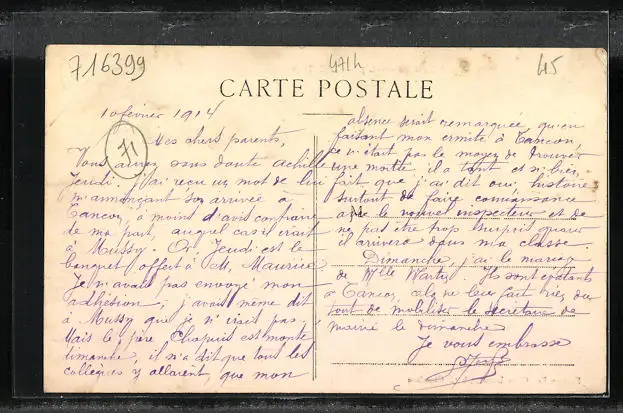 716399
47LL
45
CARTE POSTALE
10 février 1914
71
Mes chers parents,
Vous aurez sans doute Achille
Jeudi. J'ai reçu un mot de lui
m'annonçant son arrivée à
Tancon, à moins d'avis contraire
de ma part, auquel cas il irait
à Mussy. Or Jeudi est le
banquet offert à M. Maurice
Je n'avais pas envoyé mon
adhésion; j'avais même dit
à Mussy que je n'irais pas.
Mais le père Chapuis est monté
dimanche, il m'a dit que tous les
collègues y allaient, que mon
absence serait remarquée, qu'en
faisant mon ermite à Tancon,
ce n'était pas le moyen de trouver
une moitié, il a tant et si bien
fait que j'ai dit oui, histoire
surtout de faire connaissance
avec le nouvel inspecteur et de
ne pas être trop surpris quand
il arrivera dans ma classe.
Dimanche, j'ai le mariage
de Mlle Ils sont épatants
à Tancon, cela ne leur fait rien du
tout de mobiliser le secrétaire de
mairie le dimanche
Je vous embrasse